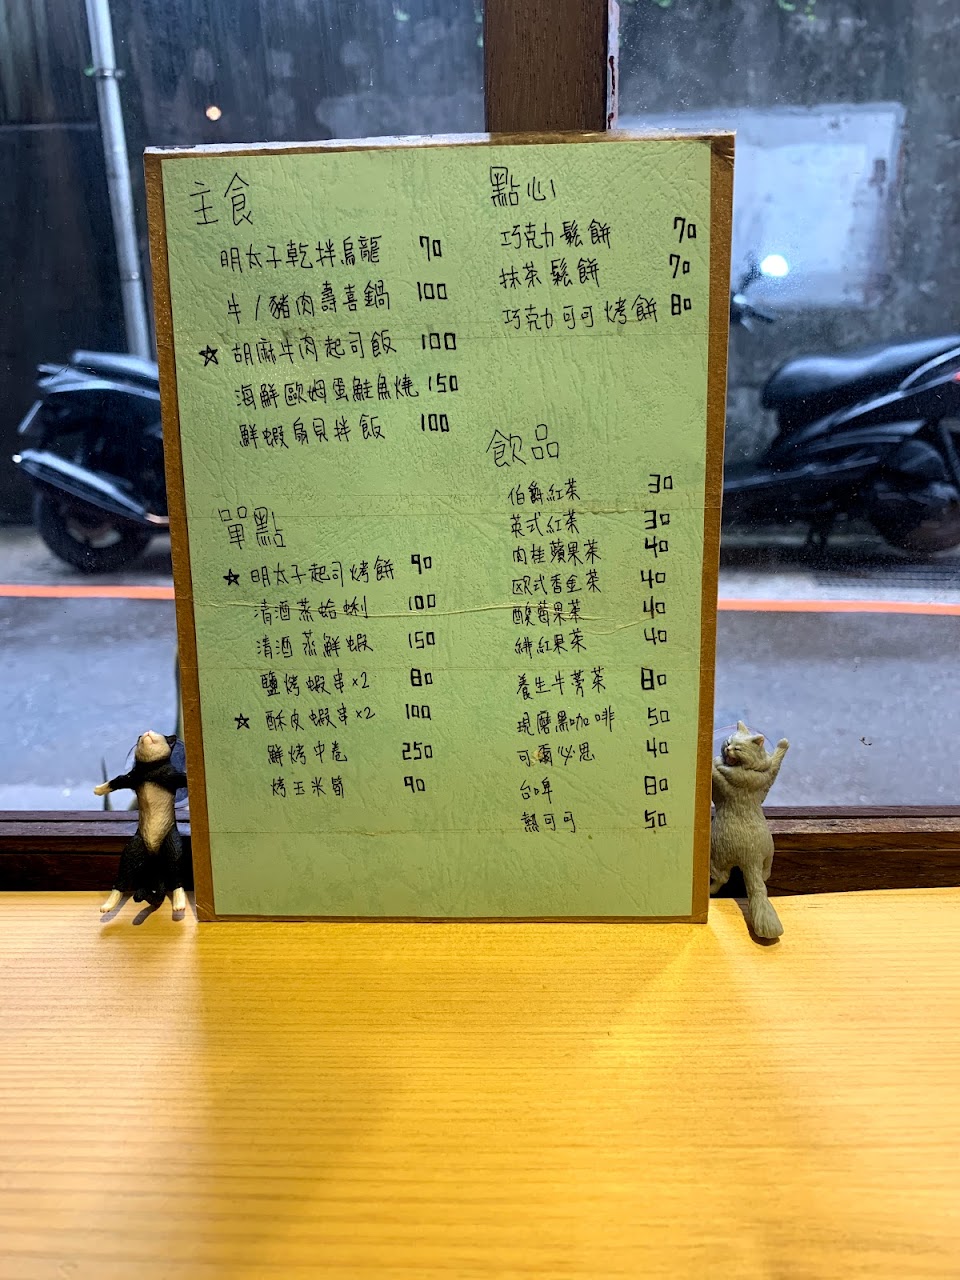 主食
明太子乾拌烏龍 70
牛/豬肉壽喜鍋 100
☆ 胡麻牛肉起司飯 100
海鮮歐姆蛋鮭魚燒 150
鮮蝦扇貝拌飯 100
單點
☆ 明太子起司烤餅 90
清酒蒸蛤蜊 100
清酒蒸鮮蝦 150
鹽烤蝦串×2 80
☆ 酥皮蝦串×2 100
鮮烤中卷 250
烤玉米筍 90
點心
巧克力鬆餅 70
抹茶鬆餅 70
巧克力可可烤餅 80
飲品
伯爵紅茶 30
英式紅茶 30
肉桂蘋果茶 40
欧式香金茶 40
酸莓果茶 40
緋紅果茶 40
養生牛蒡茶 80
現磨黑咖啡 50
可爾必思 40
台啤 80
熱可可 50